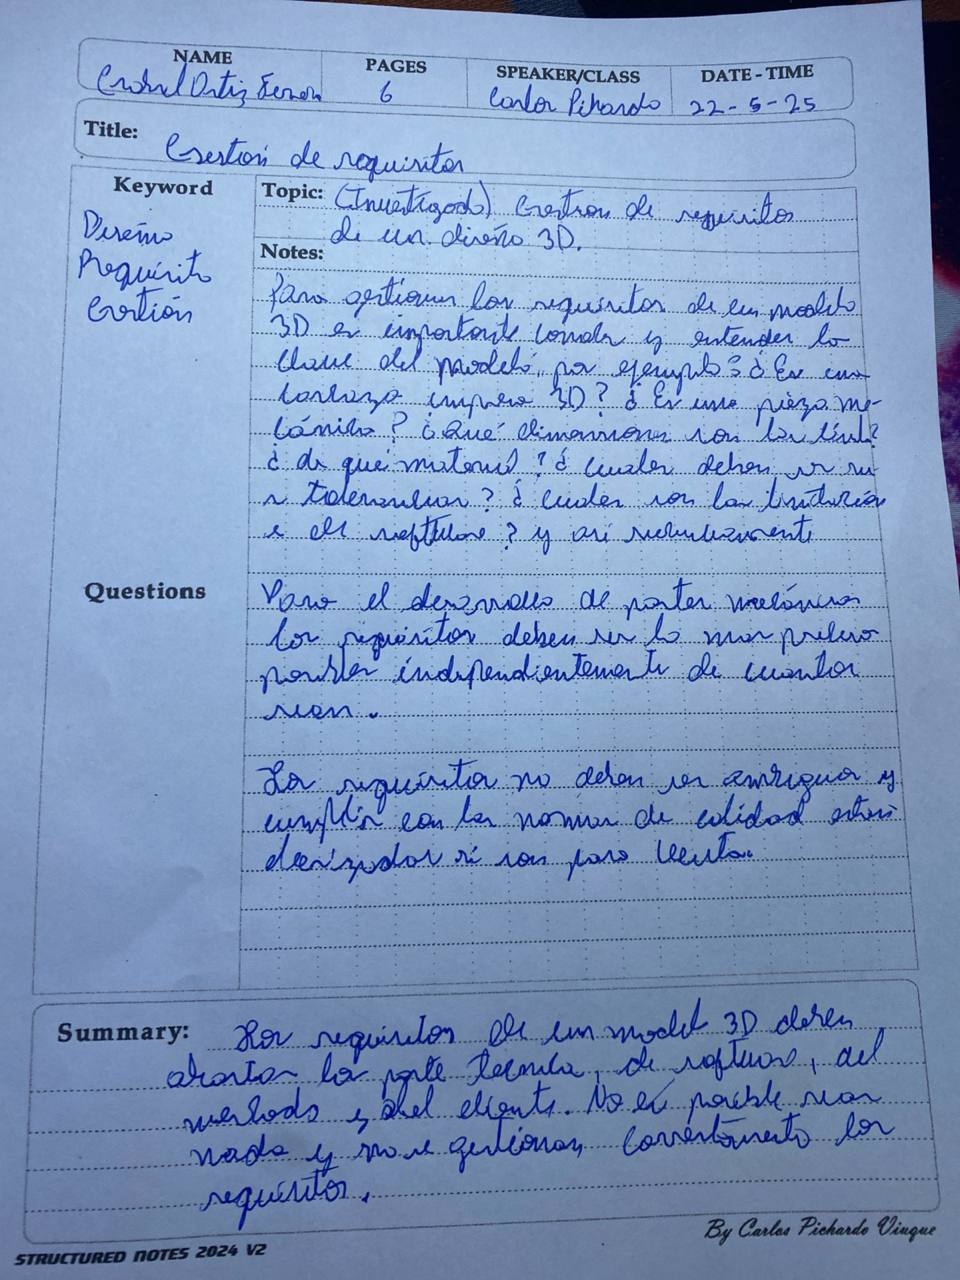 NAME
PAGES
SPEAKER/CLASS
DATE - TIME
Ortiz
6
Carlos Pichardo
22-5-25
Title:
Gestión de requisitos
Keyword
Topic: (Investigado) Gestion de requisitos
de un diseño 3D.
Diseño
Requisito
Gestión
Notes:
Para gestionar los requisitos de un modelo
3D es importante y entender lo
clave del modelo, por ejemplo: ¿Es una
carcaza impresa 3D? ¿Es una pieza me-
cánica? ¿Qué dimensiones son las
¿de qué material? ¿cuales deben ser su
s tolerancias? ¿cuales son las
s del software? y asi sucesivamente
Questions
Para el desarrollo de partes mecánicas
los requisitos deben ser lo mas preciso
posibles independientemente de cuantos
sean.
Los requisitos no deben ser ambiguos y
cumplir con las normas de calidad están
darizadas si son para venta.
Summary:
Los requisitos de un model 3D deben
abarcar la parte tecnica, de software, del
mercado y del cliente. No es posible
nada y no se gestionan correctamente los
requisitos.
By Carlos Pichardo Viuque
STRUCTURED NOTES 2024 V2